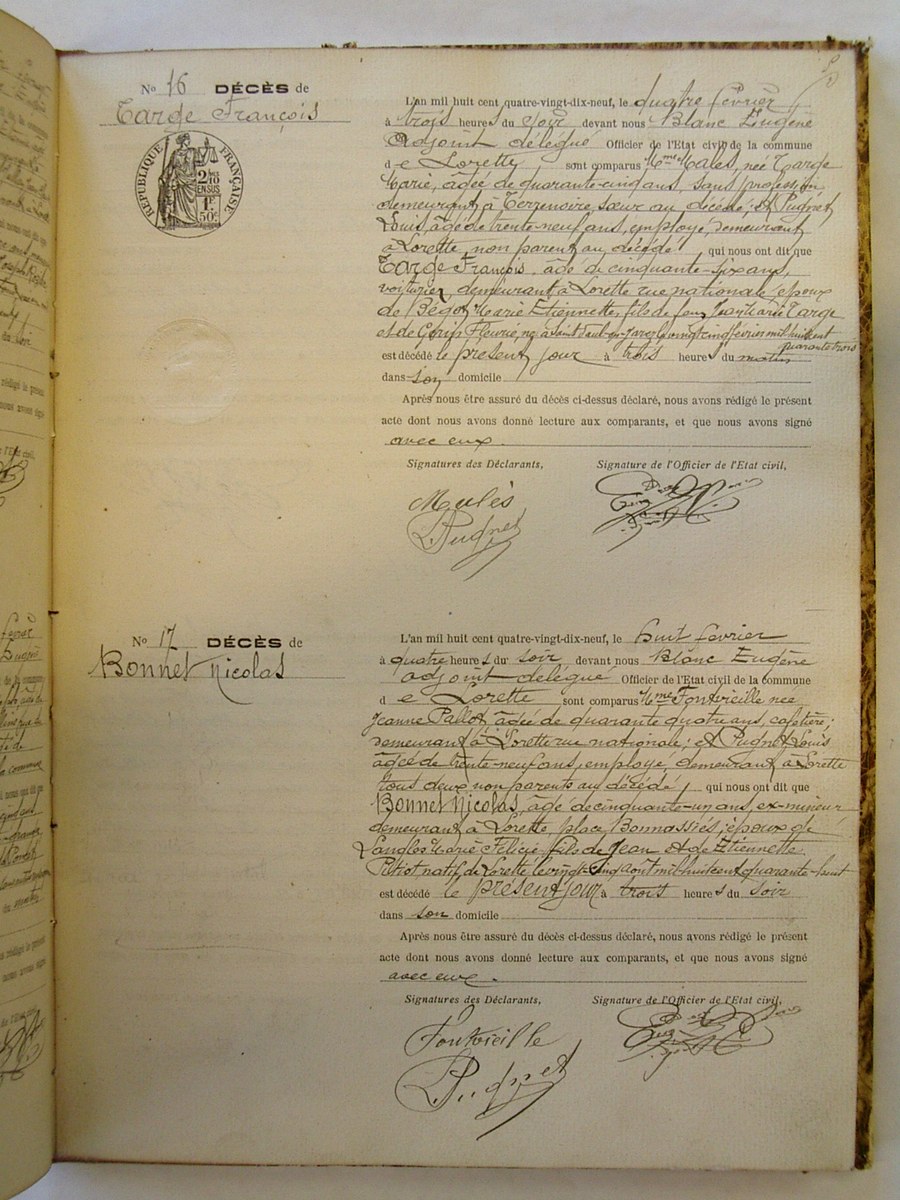 No 16 DÉCÈS de
Targe François
RÉPUBLIQUE FRANÇAISE
2/10es
EN SUS
1F
50c
L'an mil huit cent quatre-vingt-dix-neuf, le quatre février
à trois heures du soir devant nous Blanc Eugène
Adjoint délégué Officier de l'Etat civil de la commune
de Lorette, sont comparus Mme Malès, née Targe
Marie, âgée de quarante-cinq ans, sans profession,
demeurant à Terrenoire, sœur au décédé; et Pugnet
Louis, âgée de trente-neuf ans, employé, demeurant
à Lorette, non parent au décédé! qui nous ont dit que
Targe François, âgé de cinquante-six ans,
voiturier, demeurant à Lorette rue nationale, époux
de Bégot Marie Etiennette, fils de feu Targe
et de Fleurie, né à Saint Paul-en-Jarez le vingt cinq février mil huit cent
quarante trois
est décédé le présent jour à trois heures du matin
dans son domicile
Après nous être assuré du décès ci-dessus déclaré, nous avons rédigé le présent
acte dont nous avons donné lecture aux comparants, et que nous avons signé
avec eux.
Signatures des Déclarants, Signature de l'Officier de l'Etat civil,
Malès
L. Pugnet
No 17 DÉCÈS de
Bonnet Nicolas
L'an mil huit cent quatre-vingt-dix-neuf, le huit février
à quatre heures du soir, devant nous Blanc Eugène
adjoint délégué Officier de l'Etat civil de la commune
de Lorette sont comparus Mme Fontvieille née
Jeanne Pallot, âgée de quarante quatre ans, cafetière;
demeurant à Lorette rue nationale; et Pugnet Louis
âgée de trente-neuf ans, employé, demeurant à Lorette
tous deux non parents au décédé, qui nous ont dit que
Bonnet Nicolas, âgé de cinquante-un ans, ex-mineur
demeurant à Lorette, place Bonnassiés; époux de
Langlos Marie Félicie, fils de Jean et de Etiennette
Pitiot natif de Lorette le vingt-cinq août mil huit cent quarante-huit
est décédé le présent jour à trois heures du soir
dans son domicile
Après nous être assuré du décès ci-dessus déclaré, nous avons rédigé le présent
acte dont nous avons donné lecture aux comparants, et que nous avons signé
avec eux.
Signatures des Déclarants, Signature de l'Officier de l'Etat civil,
Fontvieille
L. Pugnet